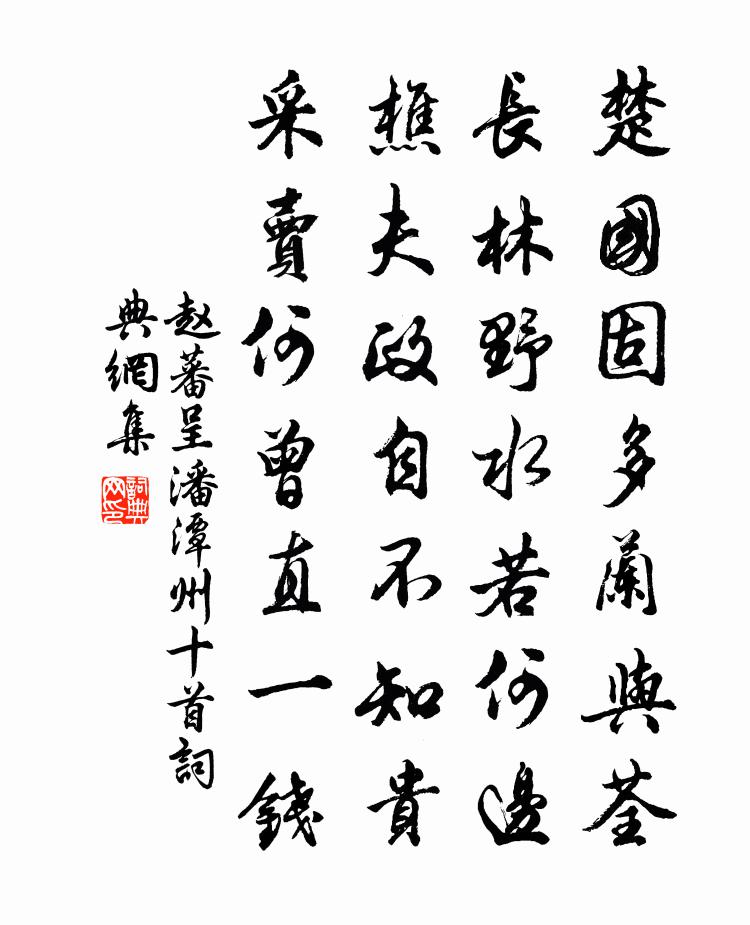 楚國固多蘭與荃
長林野水若何邊
樵夫政自不知貴
采賣何曾直一錢
赵蕃呈潘潭州十首詞
典網集
詞典
网印